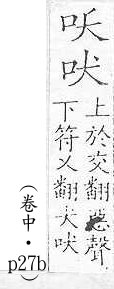 吠
上於交翻惡聲
下符乂翻犬吠
(卷中・
p27b)